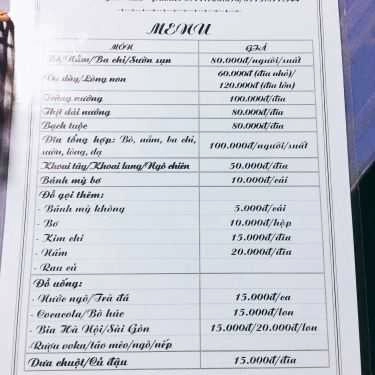 MENU
MÓN GIÁ
Bò/Nầm/Ba chỉ/Sườn sụn 80.000đ/người/suất
Dạ dày/Lòng non 60.000đ (đĩa nhỏ)/
120.000đ (đĩa lớn)
Trứng nướng 100.000đ/đĩa
Thịt dải nướng 80.000đ/đĩa
Bạch tuộc 80.000đ/đĩa
Đĩa tổng hợp: Bò, nầm, ba chỉ,
sườn, lòng, dạ 100.000đ/người/suất
Khoai tây/Khoai lang/Ngô chiên 50.000đ/đĩa
Bánh mỳ bơ 10.000đ/cái
Đồ gọi thêm:
- Bánh mỳ không 5.000đ/cái
- Bơ 10.000đ/hộp
- Kim chi 15.000đ/đĩa
- Nấm 20.000đ/đĩa
- Rau củ
Đồ uống:
- Nước ngô/Trà đá 15.000đ/ca
- Cocacola/Bò húc 15.000đ/lon
- Bia Hà Nội/Sài Gòn 15.000đ/20.000đ/lon
/Rượu voka/táo mèo/ngô/nếp
Dưa chuột/Củ đậu 15.000đ/đĩa